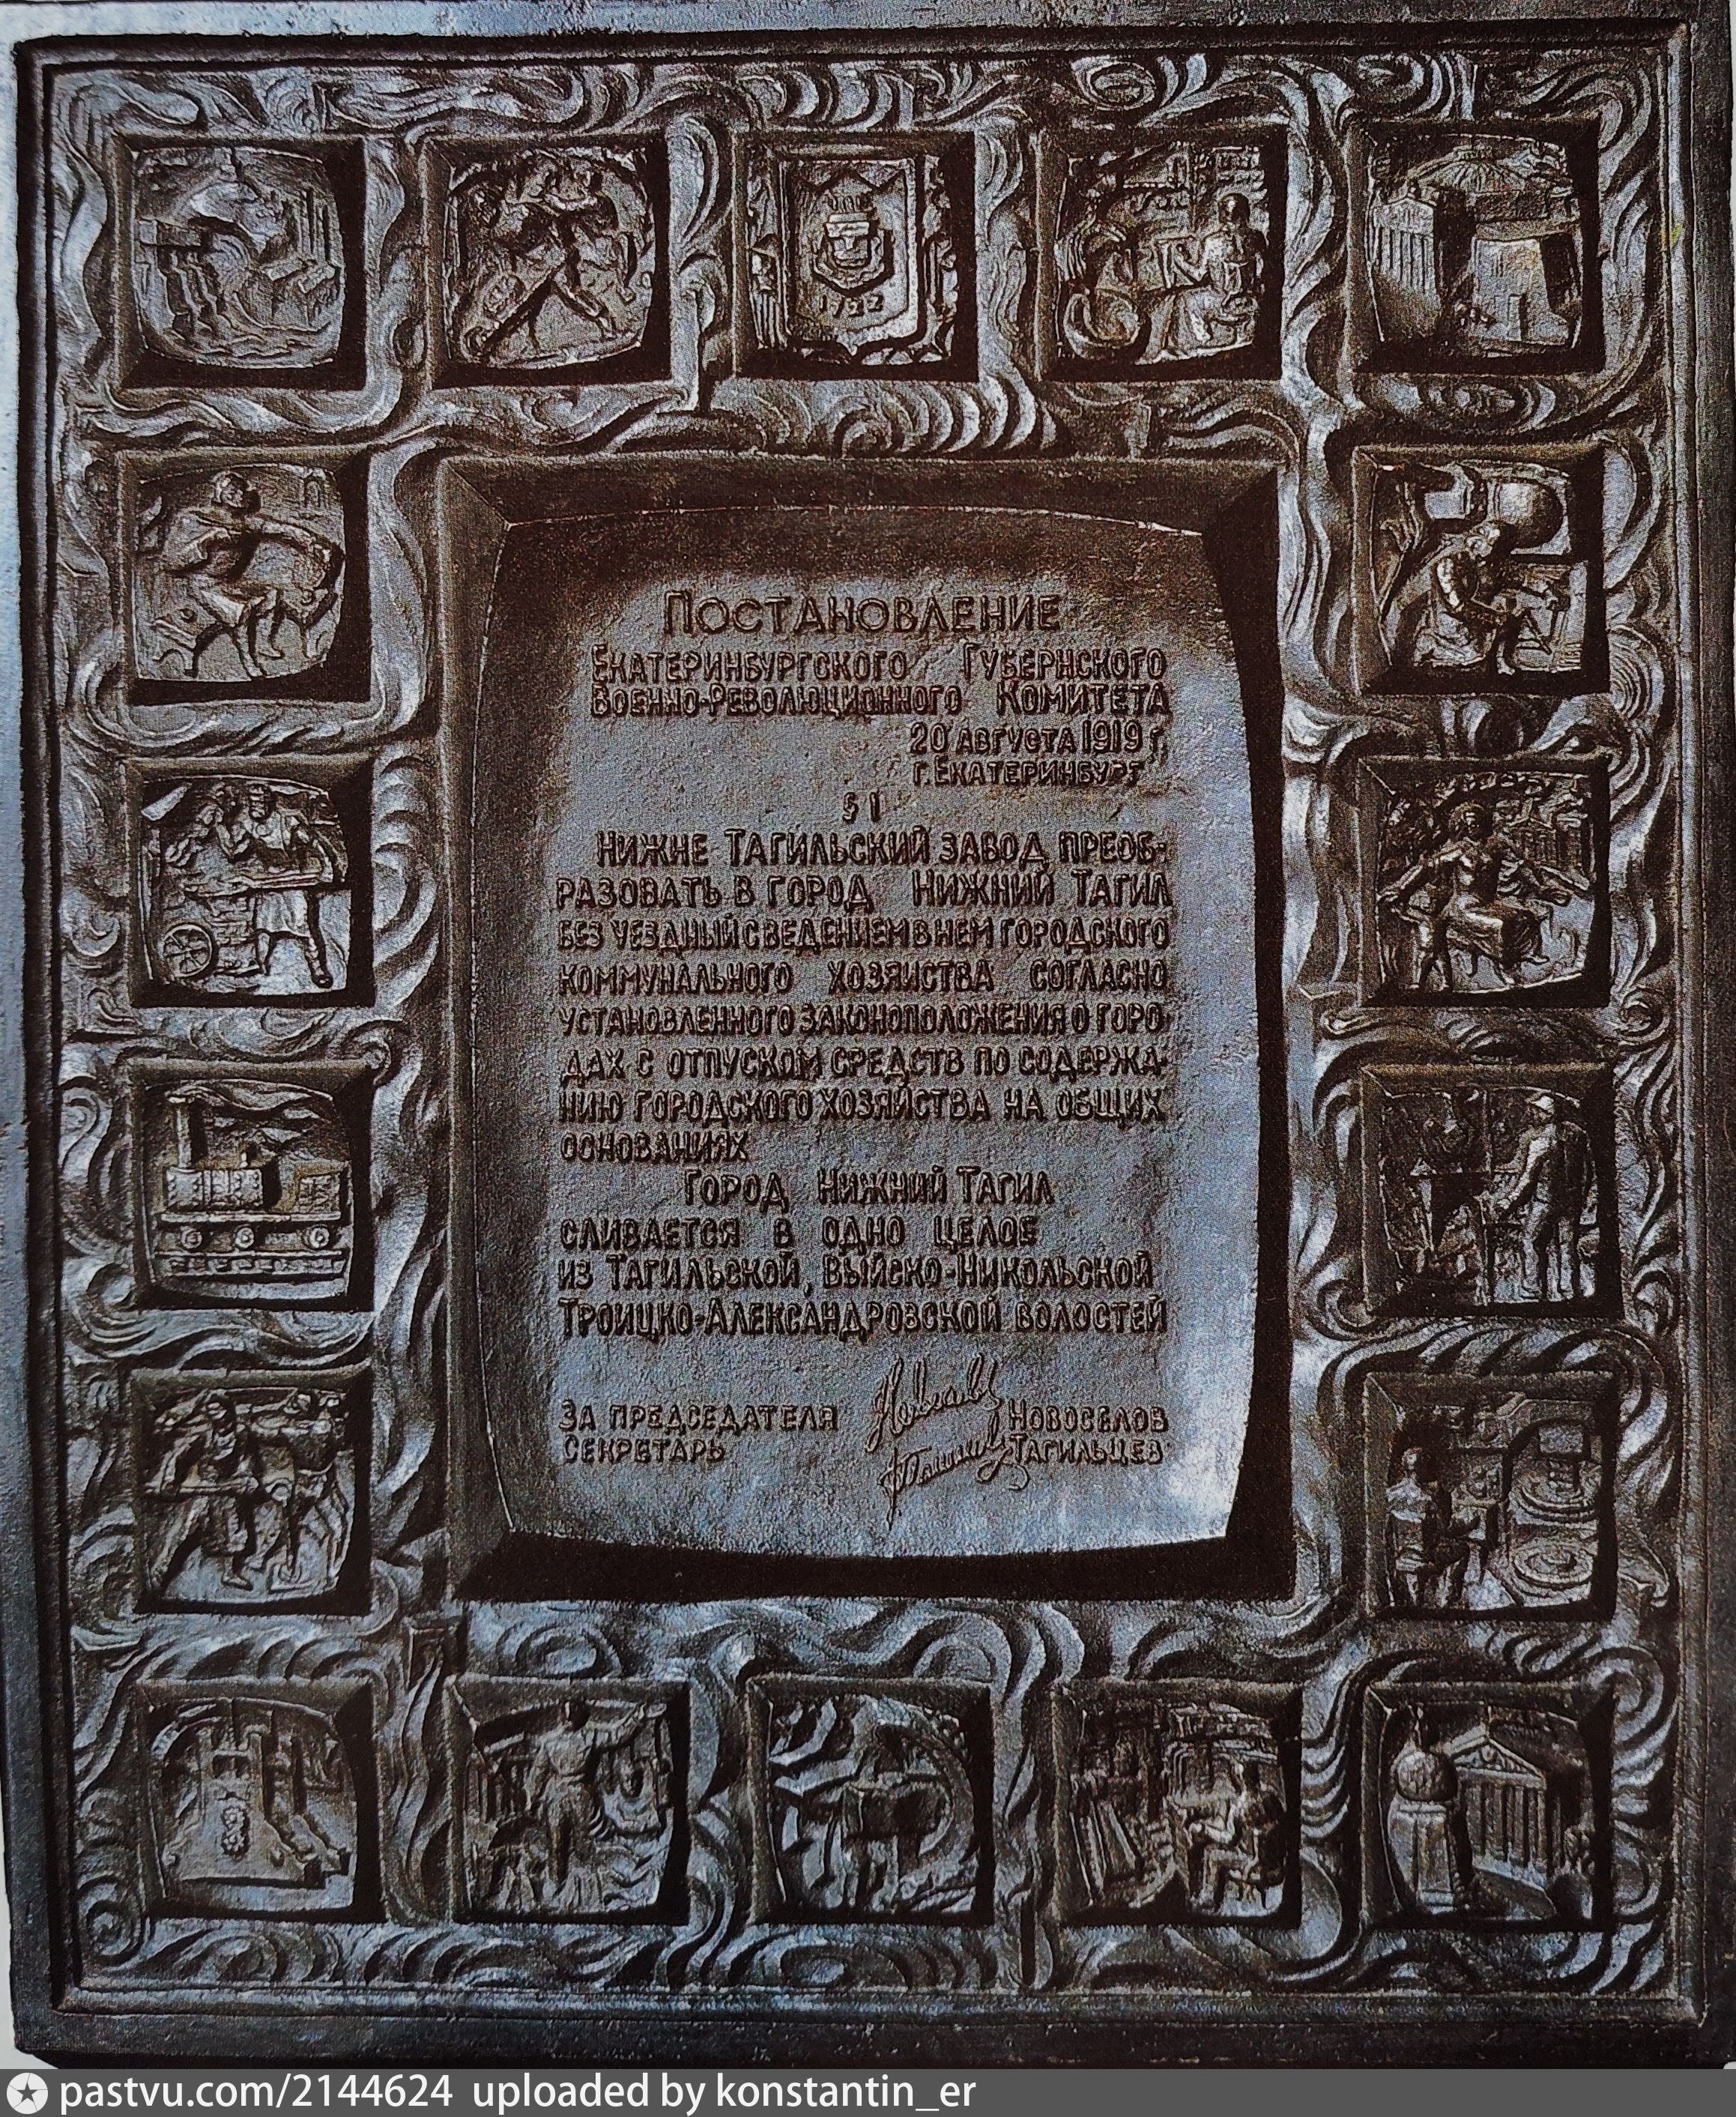 1722
Постановление
Екатеринбургского Губернского
Военно-Революционного Комитета
20 августа 1919 г,
г. Екатеринбург
§ 1
Нижне Тагильский завод преоб-
разовать в город Нижний Тагил
без уездный с ведением в нем городского
коммунального хозяйства согласно
установленного законоположения о горо-
дах с отпуском средств по содержа-
нию городского хозяйства на общих
основаниях
Город Нижний Тагил
сливается в одно целое
из Тагильской, Выйско-Никольской
Троицко-Александровской волостей
За председателя Новоселов
Секретарь Тагильцев
pastvu.com/2144624 uploaded by konstantin_er